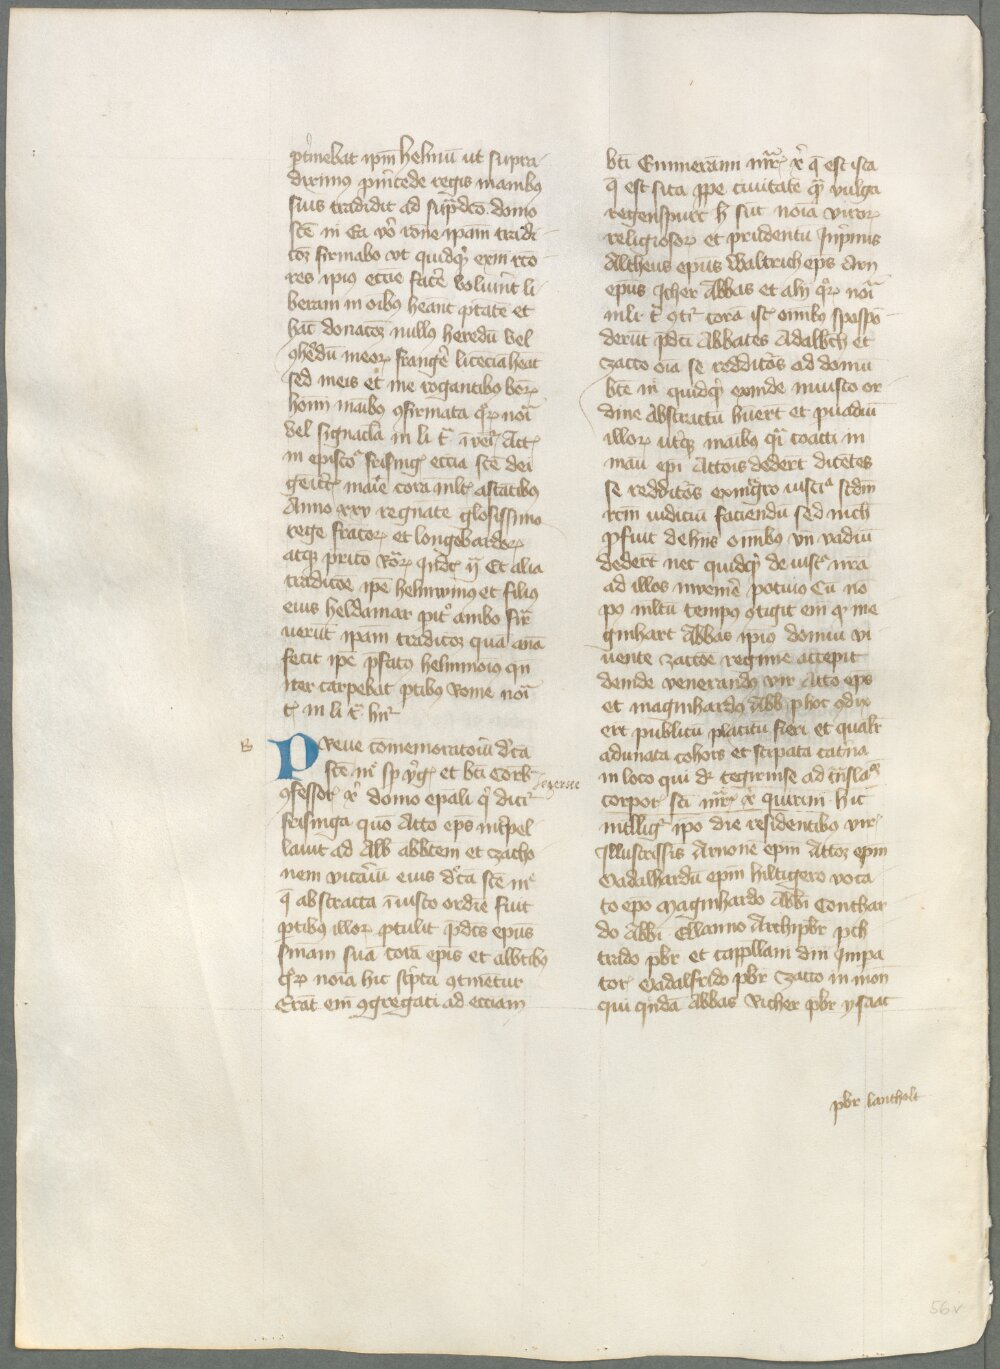 ptinebat ipm helmuni ut supra
diximus pincede regis manibus
suis tradidit ad supdco domo
sce m Ea vo rone ipam tradi
coz firmabo ut quidquid exin rco
res ipius eccie face voluint li
beram in oibus heant ptate et
hac donacoz nullus heredu vel
9hedu meor frange licencia heat
sed meis et me rogantibus bor
homi maibus 9firmata qr noia
vel signacla in li t inveir Act
in episco frising eccia sce dei
geitc maie cora mlt astatibus
Anno xxv regnate glosissimo
rege francor et longobardor
atq prico Ror Indc ij Et alia
tradicoe ipe helmwinus et filius
eius heldamar pit ambo fir
uerut ipam tradicoz qua ana
fecit ipe pfatus helmmoius qn
iter carpebat ptibus Rome noia
t in li t hnr
B
Breue comemoratoiu dca
sce m sp vg et bti Corb
Tegernse
9fessor x domo epali q dicr
frisinga quo Atto eps intpel
lauit ad Alb abbtem et czacho
nem vicariu eius dca sce m
q abstracta iniusto ordie fuit
ptibus illor ptulit pdcs epus
smam sua cora epis et albtibus
qr noia hic scpta 9tinetur
Erat em 9gregati ad ecciam
bti Emmerammi mr x q est ista
q est sita ppe ciuitate q vulga
regenspurc h sut noia viror
religiosor et prudentu Inprimis
Altheus epus Waltrich eps Arn
epus Icher Abbas et alij qr noia
in li t 9tr cora ist omibus spospo
derut pdci Abbates Adalbch et
czacco oia se reddituros ad domu
bte m quidquid exinde iniusto or
dine Abstractu huert et puadiu
illor utrq maibus qi coacti in
manu epi Attois dedert dicetes
se reddituros ex integro iusticia scdm
rcm iudiciu faciendu sed nich
pfuit dehinc omibus vn vadiu
dedert nec quidquid de iusta nra
ad illos inuenire potuio Cu no
po mltu tempus 9tigit em q me
ginhart Abbas ipius domui vi
uente czaccoe regime accepit
deinde venerandus vir Atto eps
et maginhardus Abb phoc 9dix
ert publicu placitu fieri et qualr
adunata cohors et stipata catrua
in loco qui dr tegrinse ad translaco
corpor sci mr x quirini hic
intllig ipo die residentibus vir
Illustrissis Arnone epm Attoz epm
Oadalhardu epm hiltigero voca
to epo maginhardo Abbi Conthar
do Abbi Ellanno Archipbr pch
traldo pbr et cappllam dni Impa
tor Oadalfrido pbr czacco in mon
qui qnda Abbas Richer pbr ysaac
pbr lantholt
56v